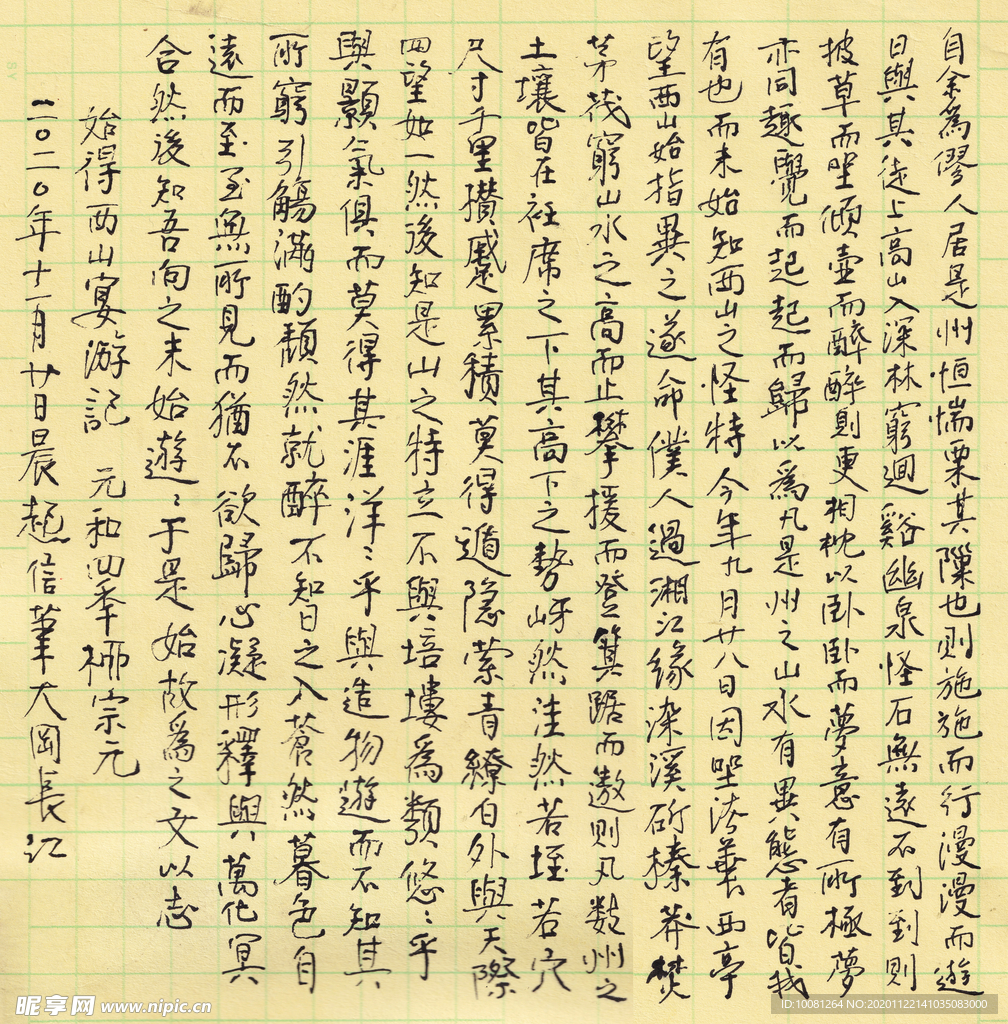 自余為僇人居是州恒惴栗其隟也則施施而行漫漫而遊
日與其徒上高山入深林窮迴谿幽泉怪石無遠不到到則
披草而坐傾壺而醉醉則更相枕以卧卧而夢意有所極夢
亦同趣覺而起起而歸以為凡是州之山水有異態者皆我
有也而未始知西山之怪特今年九月廿八日因坐法華西亭
望西山始指異之遂命僕人過湘江緣染溪斫榛莽焚
茅茷窮山水之高而止攀援而登箕踞而遨則凡數州之
土壤皆在衽席之下其高下之勢岈然洼然若垤若穴
尺寸千里攢蹙累積莫得遁隐萦青繚白外與天際
四望如一然後知是山之特立不與培塿為類悠〻乎
與顥氣俱而莫得其涯洋〻乎與造物遊而不知其
所窮引觴滿酌頹然就醉不知日之入蒼然暮色自
遠而至至無所見而猶不欲歸心凝形釋與萬化冥
合然後知吾向之未始遊〻于是始故為之文以志
始得西山宴游記 元和四年柳宗元
二〇二〇年十一月廿日晨起信筆大岡長江
昵享网 www.nipic.cn
ID:10081264 NO:20201122141035083000